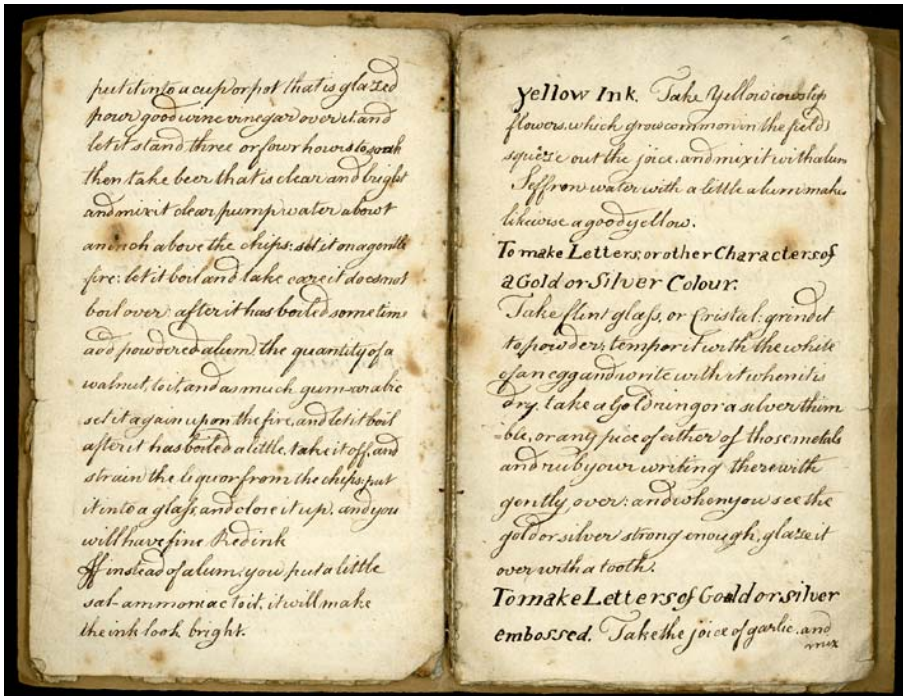 put it into a cup or pot that is glazed
pour good wine vinegar over it and
let it stand three or fowr hours to soak
then take beer that is clear and bright
and mix it clear pump water abowt
an inch above the chips: set it on a gentle
fire: let it boil and take care it does not
boil over after it has boiled some time
add powdered alum, the quantity of a
walnut, to it, and as much gum-arabic
set it again upon the fire, and let it boil
after it has boiled a little, take it off, and
strain the liquor from the chips: put
it into a glass, and close it up, and you
will have fine Red ink
If instead of alum, you put a little
sal-ammoniac to it, it will make
the ink look bright.
Yellow Ink. Take Yellow cowslip
flowers, which grow common in the fields
squeze out the joice, and mix it with alum
Seffron water with a little alum makes
likewise a good yellow.
To make Letters, or other Characters of
a Gold or Silver Colour.
Take flint glass, or Cristal: grind it
to powder, temper it with the white
of an egg and write with it when it is
dry, take a Gold ring or a silver thim
=ble, or any piece of either of those metals
and rub your writing therewith
gently over: and when you see the
gold or silver strong enough, glaze it
over with a tooth.
To make Letters of Goald or silver
embossed. Take the joice of garlic, and
mix